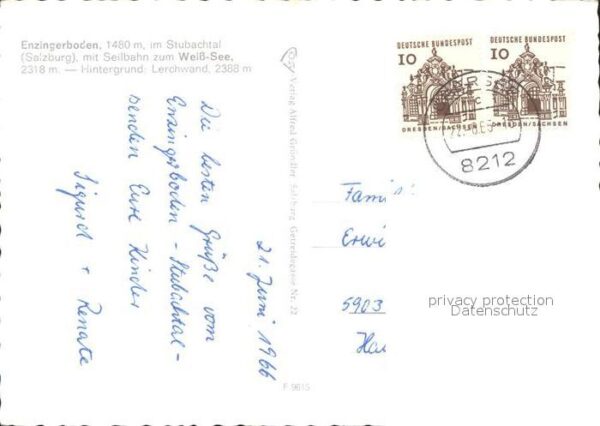 Enzingerboden, 1480 m, im Stubachtal
(Salzburg), mit Seilbahn zum Weiß-See,
2318 m. — Hintergrund: Lerchwand, 2388 m
Die besten Grüße vom
Enzingerboden - Stubachtal -
senden Eure Kinder
Sigurd + Renate
21. Juni 1966
Verlag Alfred Gründler Salzburg Getreidegasse Nr. 22
F 9615
DEUTSCHE BUNDESPOST
10
DRESDEN/SACHSEN
DEUTSCHE BUNDESPOST
10
DRESDEN/SACHSEN
8212
Fami
Erwi
5903
Hai
privacy protection
Datenschutz